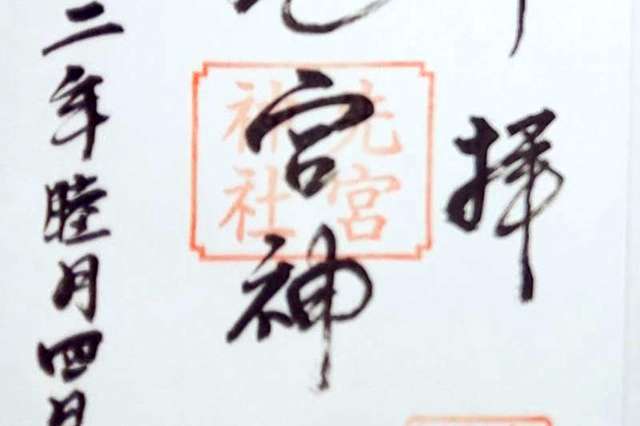 拝
宮神
先宮
神社
二年睦月四日